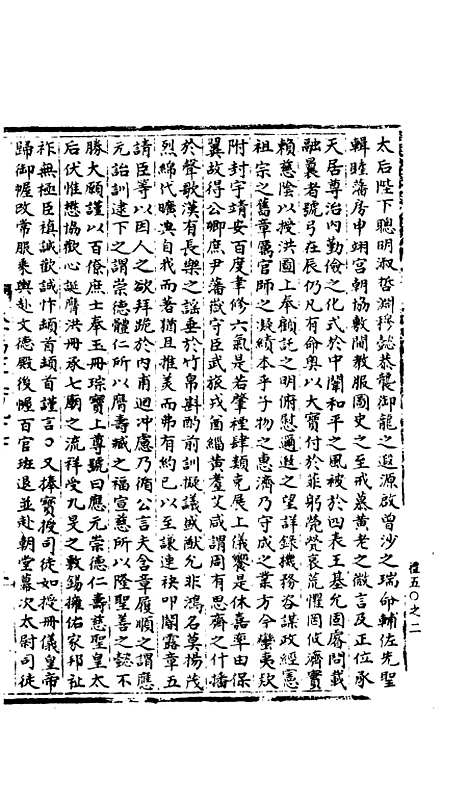 太后陛下聰明淑哲淵穆懿恭襲御龍之遐源啟曾沙之瑞命輔佐先聖
輯睦藩房申翊宮朝協敷閫教服圖史之至戒慕黃老之微言及正位承
天居尊治內勤儉之化式於中闈和平之風被於四表王基允固睿問載
融曩者號弓在辰仍凡有命奧以大寶付於菲躬煢煢哀荒懼罔攸濟實
賴慈陰以授洪圖上奉顧託之明俯慰遐邇之望詳錄機務咨謀政經憲
祖宗之舊章厲官師之凝績本乎子物之惠濟乃守成之業方今蠻夷欵
附封宇靖安百度聿修六氣是若肇禋肆類克展上儀饗是休嘉率由保
翼故得公卿庶尹藩嶽守臣武旅戎酋緇黃耋艾咸謂周有思齊之什播
於聲歌漢有長樂之謡垂於竹帛斟酌前訓擬議盛猷允非鴻名莫揚茂
烈綿代曠典自我而著猶且推美而弗有約己以至謙連袂叩閽露章五
請臣等以因人之欲拜跪於內甫迴沖慮乃循公言夫含章履順之謂應
元詒訓逮下之謂崇德體仁所以膺壽臧之福宣慈所以隆聖善之懿不
勝大願謹以百僚庶士奉玉冊琮寶上尊號曰應元崇德仁壽慈聖皇太
后伏惟懋協歡心誕膺洪冊承七廟之流祥受九旻之敷錫擁佑家邦祉
祚無極臣禎誠歡誠忭頡首頡首謹言〇又捧寶授司徒如授冊儀皇帝
歸御幄改常服乘輿赴文德殿後幄百官班退並赴朝堂幕次太尉司徒
禮五〇之二